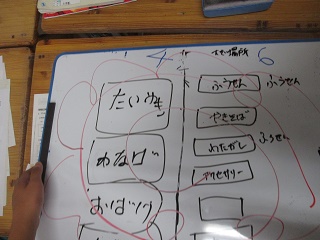 4
6
たいやき
わなげ
おばけ
ふうせん ふうせん
やきそば
わたがし ふうせん
アクセサリー